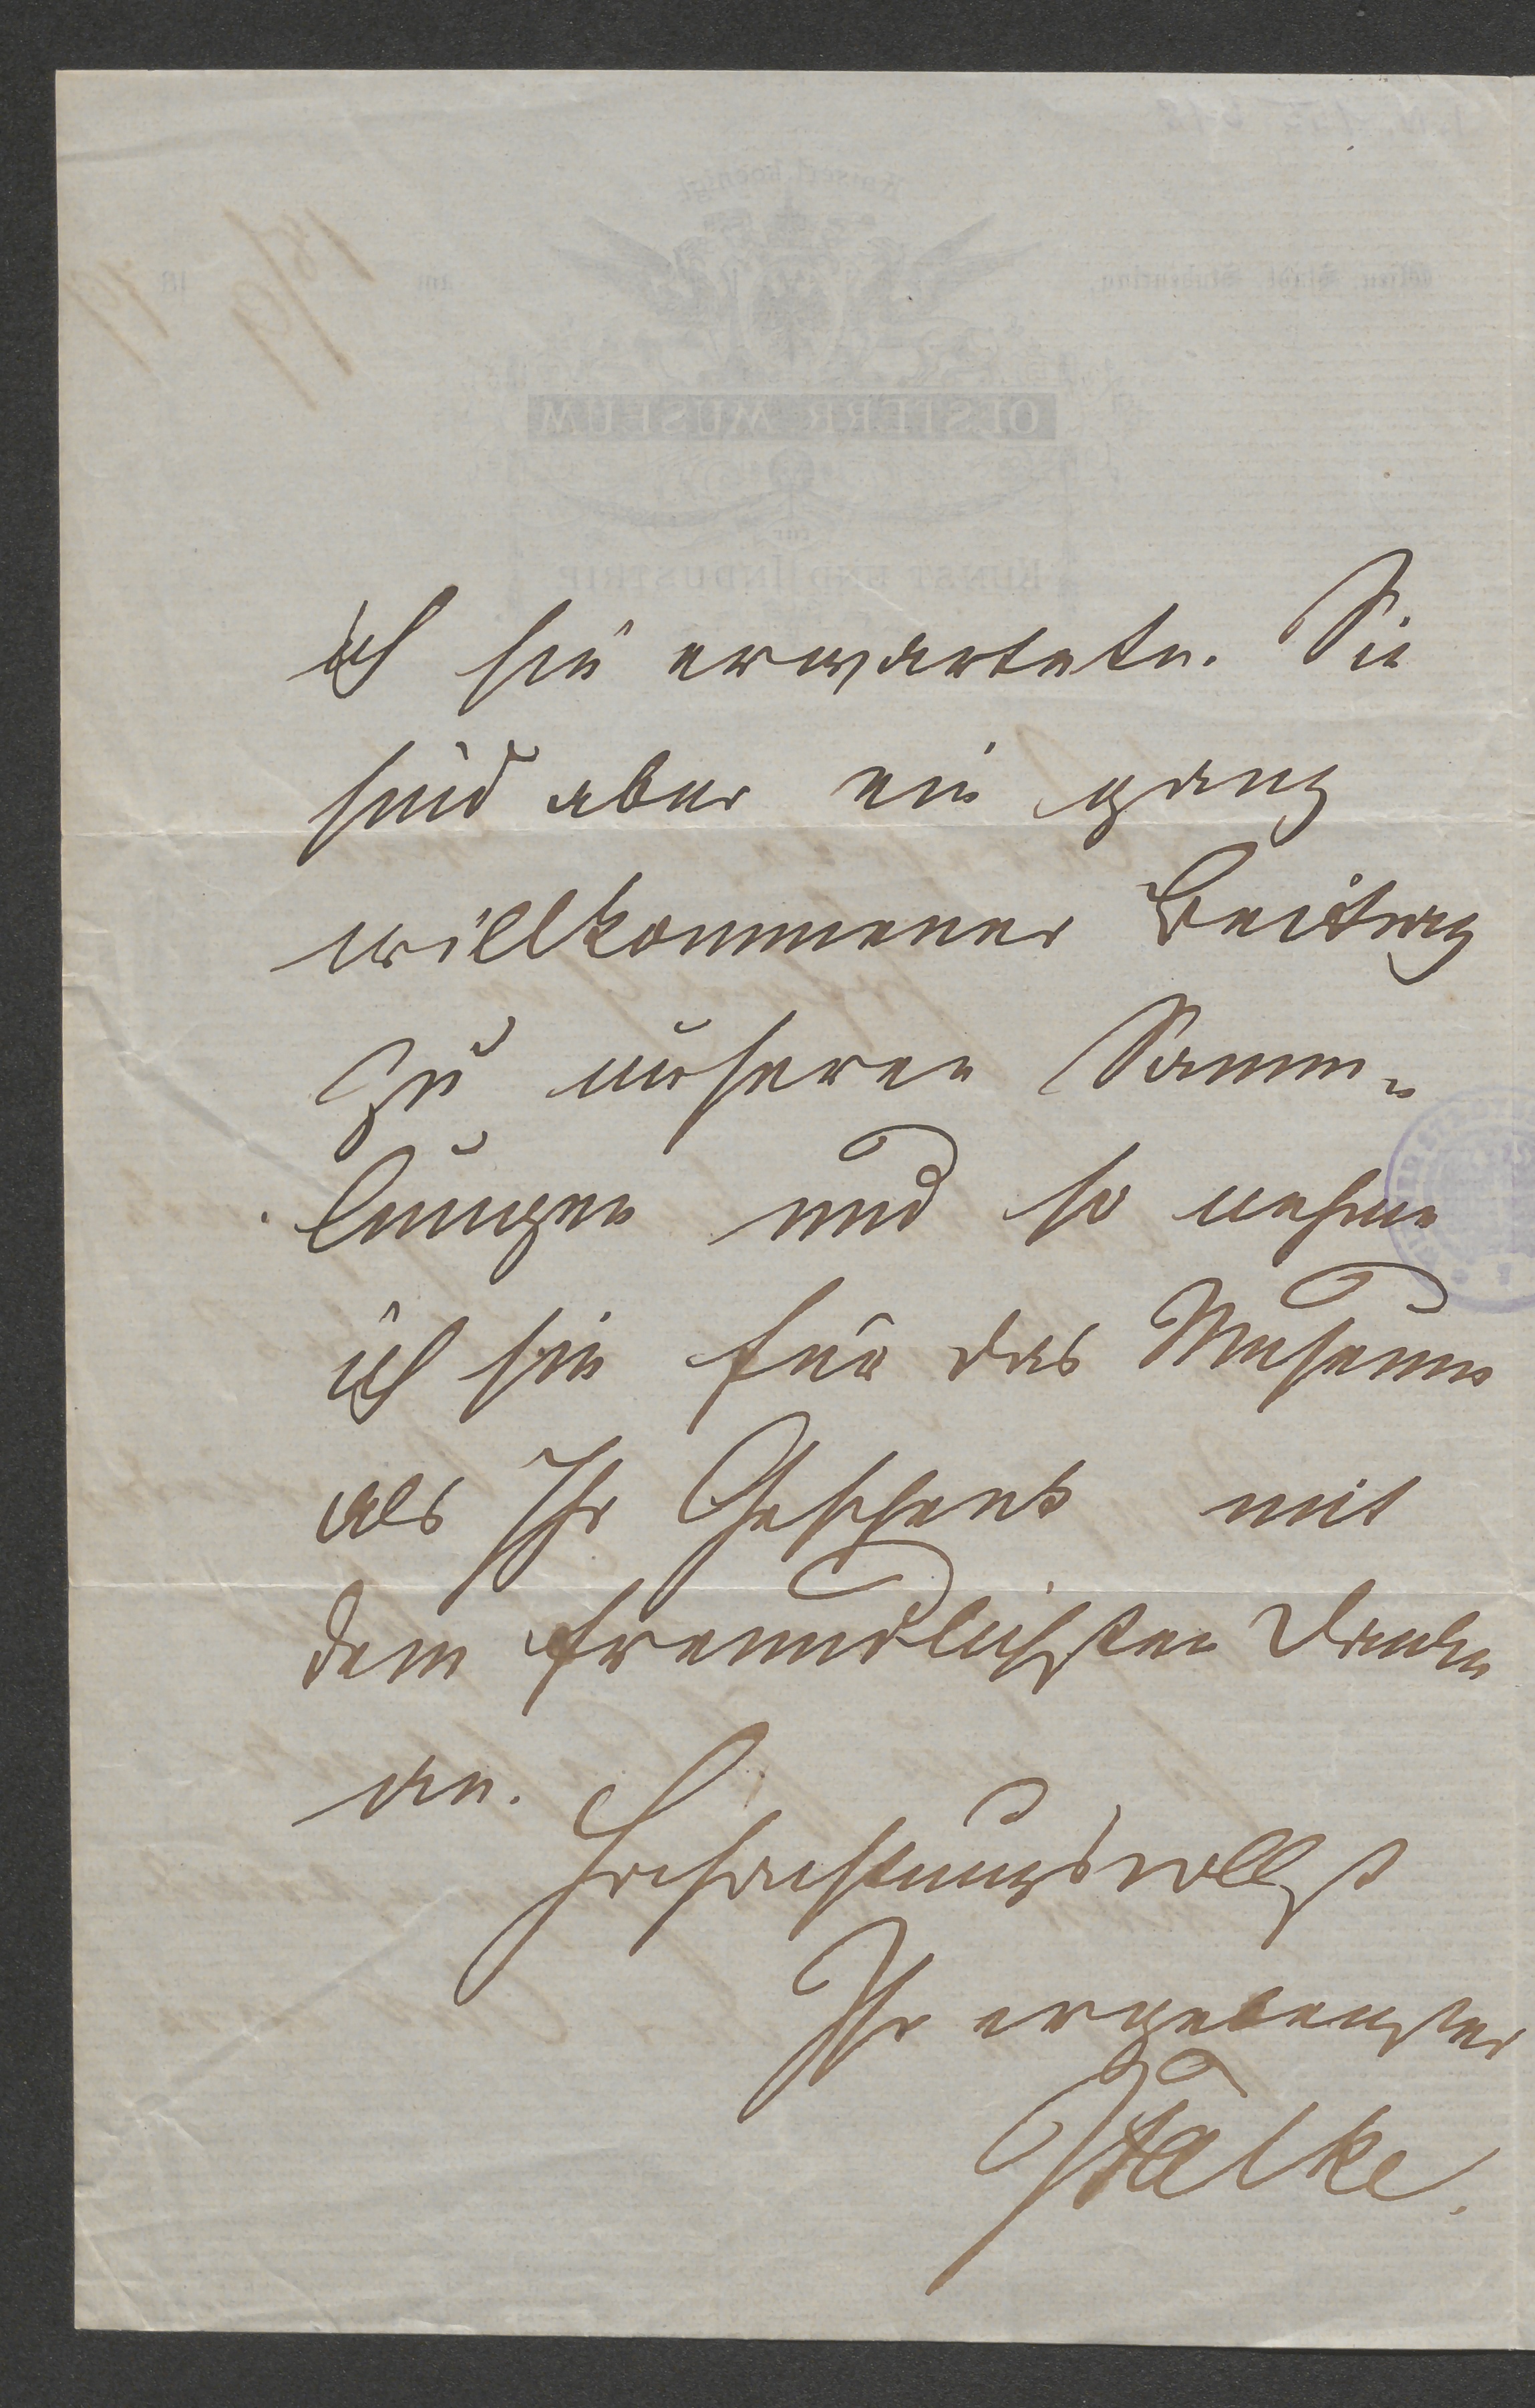 ich sie erwartete. Sie
sind aber ein ganz
willkommener Beitrag
zu unseren Samm-
lungen und so nehme
ich sie für das Museum
als Ihr Geschenk mit
dem freundlichsten Danke
an.
Hochachtungsvollst
Ihr ergebenster
JFalke.